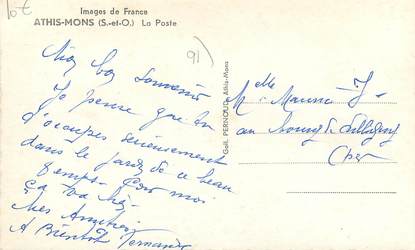 10€
Images de France
ATHIS-MONS (S.-et-O.) La Poste
91)
Mon bon souvenir
Je pense que tu
t'occupes sérieusement
dans le jardin de ce beau
temps. Pour moi
ça va
Mes Amitiés
A Bientôt Fernande
Gall. PERNOUD, Athis-Mons
Melle Maurice J
au bourg de
Cher